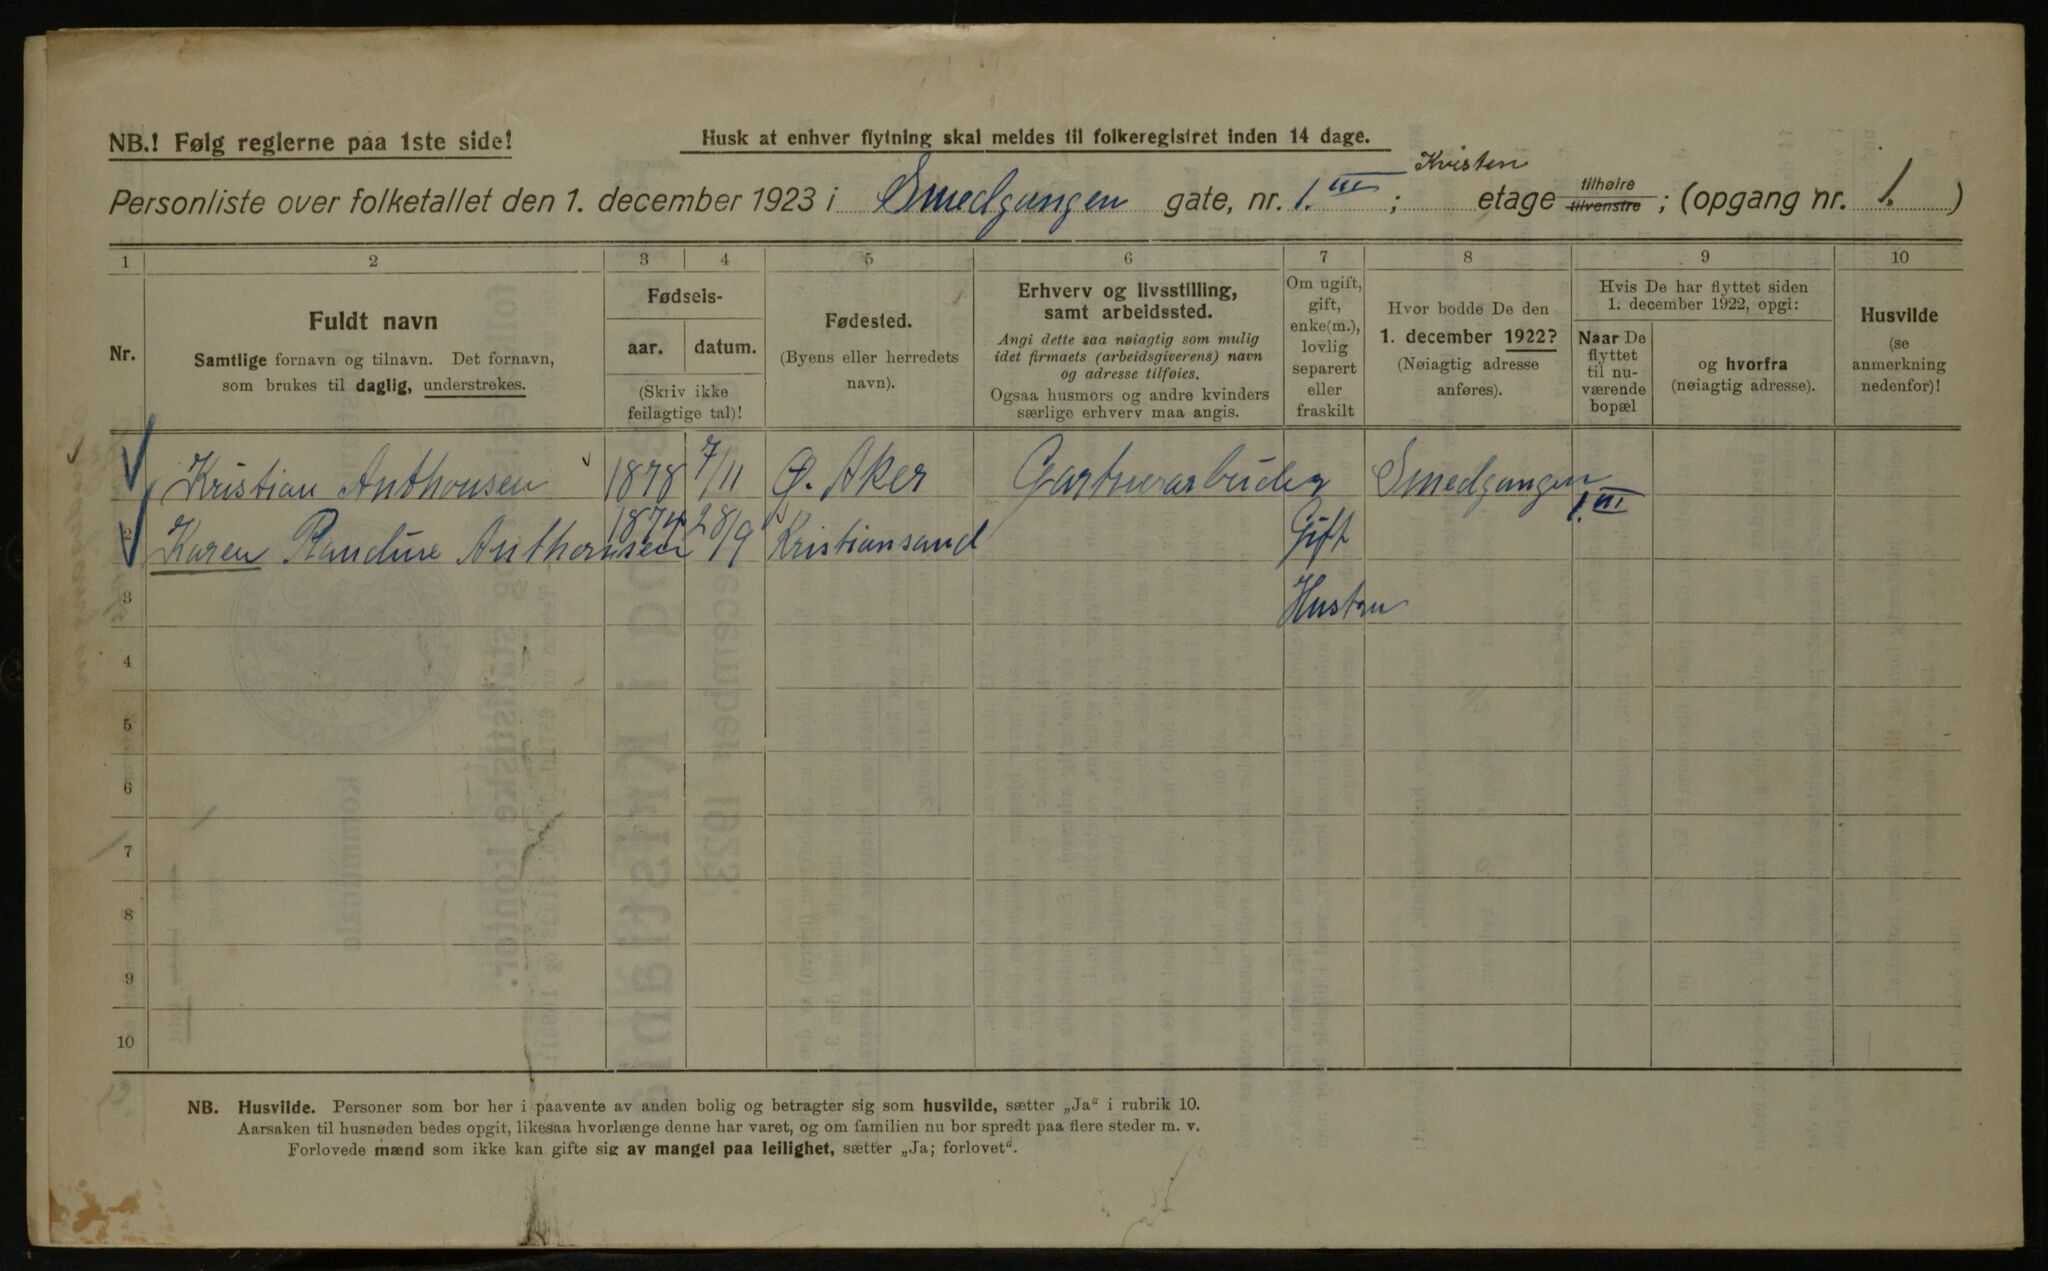 NB.! Følg reglerne paa 1ste side!
Husk at enhver flytning skal meldes til folkeregistret inden 14 dage.
Kvisten
Personliste over folketallet den 1. december 1923 i Smedgangen gate, nr. 1.III; etage tilhøire tilvenstre; (opgang nr. 1.)
1 2 3 4 5 6 7 8 9 10
Nr.
Fuldt navn
Samtlige fornavn og tilnavn. Det fornavn,
som brukes til daglig, understrekes.
Fødsels-
aar. datum.
(Skriv ikke
feilagtige tal)!
Fødested.
(Byens eller herredets
navn).
Erhverv og livsstilling,
samt arbeidssted.
Angi dette saa nøiagtig som mulig
idet firmaets (arbeidsgiverens) navn
og adresse tilføies.
Ogsaa husmors og andre kvinders
særlige erhverv maa angis.
Om ugift,
gift,
enke(m.),
lovlig
separert
eller
fraskilt
Hvor bodde De den
1. december 1922?
(Nøiagtig adresse
anføres).
Hvis De har flyttet siden
1. december 1922, opgi:
Naar De
flyttet
til nu-
værende
bopæl
og hvorfra
(nøiagtig adresse).
Husvilde
(se
anmerkning
nedenfor)!
Kristian Anthonsen 1878 7/11 Ø. Aker Gartnerarbeider Smedgangen
1.III
2 Karen Randine Anthonsen 1874 28/9 Kristiansand Gift
3 Hustru
4
5
6
7
8
9
10
NB. Husvilde. Personer som bor her i paavente av anden bolig og betragter sig som husvilde, sætter „Ja“ i rubrik 10.
Aarsaken til husnøden bedes opgit, likesaa hvorlænge denne har varet, og om familien nu bor spredt paa flere steder m. v.
Forlovede mænd som ikke kan gifte sig av mangel paa leilighet, sætter „Ja; forlovet“.